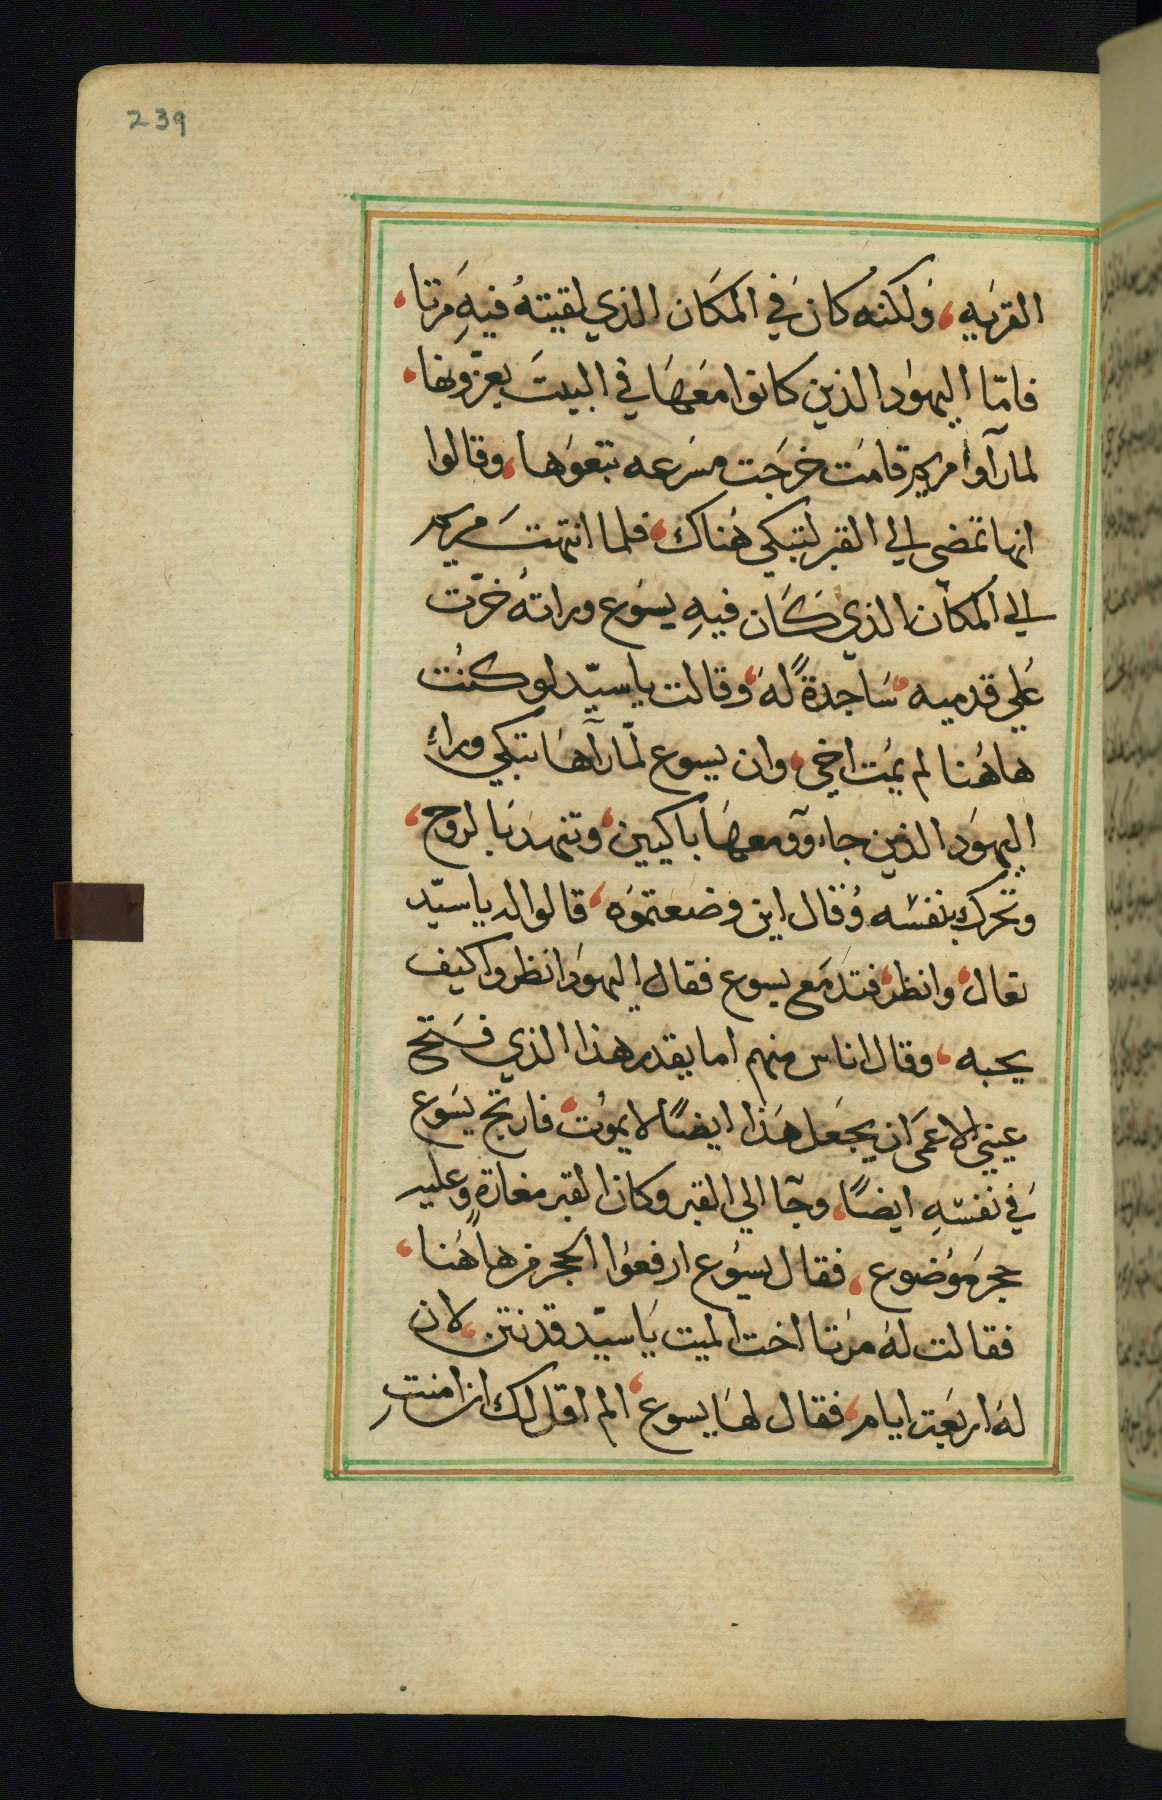 239
القريه، وَلكنه كانَ في المكَان الذي لقيتهُ فيهِ مَرتا،
فامّا اليهوَد الذين كانوا معَهَا في البيتَ يعزّونها،
لما رآوا مريم قامَت خرجَت مسَرعه تبعوَها، وقالوا
انها تمضى الي القبر لتبكي هُناك، فلما انتهتَ مريم
الي المكان الذي كَان فيهِ يسَوع وراتهُ خرّت
عَلي قدميه، سَاجدةً لهَ، وقالت ياسيّد لو كنُت
هاهُنا لم يمُت اخي، وان يسوع لمّا رآهَا تبكي وراءِ
اليهوَد الذين جاءوٓ معهَا باكيين، وتنهدَ بالروح،
وتحرك بنفسَه وُقال اين وضعَتموَه، قالوا له ياسيّد
تعال، وانظر، فتدمَع يسوع فقال اليهوَد انظروا كيف
يحبه، وقال اناس منهم اما يقدر هذا الذي فتَح
عيني الاعمَى ان يجعَل هَذا ايضًا لا يموُت، فارتج يسَوع
في نفسَهِ ايضًا، وجآ الي القبر وكان القبر مغارةٍ وَعليه
حجر مَوُضوع، فقال يسَوُع ارفعوُا الحجر من هاهُنا،
فقالت لهُ مرَتا اخت الميت يَاسيّد قد نتن، لان
لهَ اربَعة ايام، فقال لهَا يسوع، الم اقل لك ان امنتِ